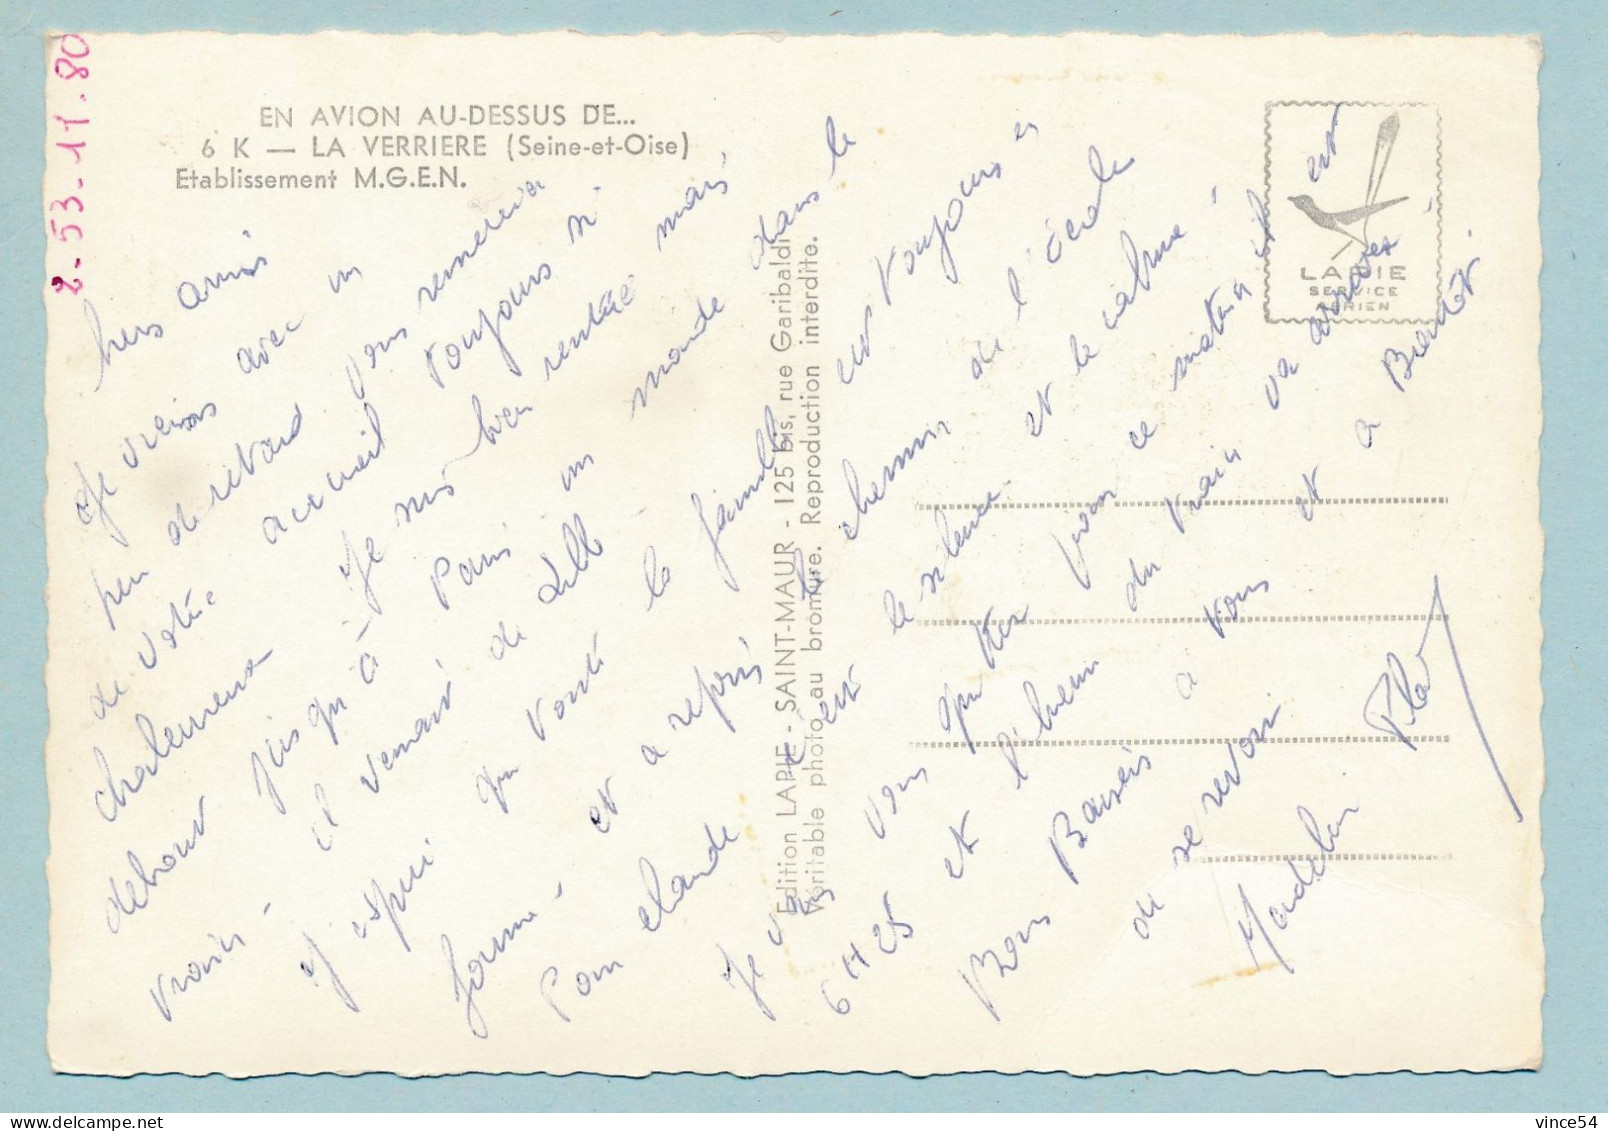 EN AVION AU-DESSUS DE...
6 K — LA VERRIERE (Seine-et-Oise)
Etablissement M.G.E.N.
2-53-11.80
LAPIE
SERVICE
AERIEN
Edition LAPIE - SAINT-MAUR - 125 bis, rue Garibaldi
Véritable photo au bromure. Reproduction interdite.
hers amis
Je viens avec un
peu de retard vous remercier
de votre accueil toujours si
chaleureux Je suis bien rentrée mais
debout jusqu'à Paris un monde dans le
train - il venait de Lille -
J'espère que toute la famille est toujours en
forme - et a repris le chemin de l'école
Pour Claude c'est le silence et le calme -
Je vais vous quitter pour ce matin il est
6 H 25 et l'heure du train va arriver
Bons Baisers à vous et a Bientôt.
de se revoir
Madeleine
vince54